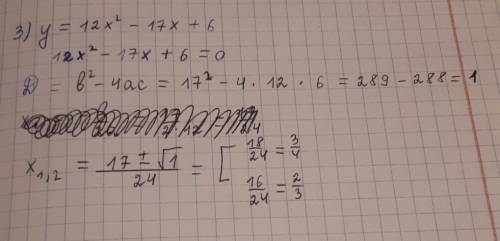 3) y = 12x² - 17x + 6
12x² - 17x + 6 = 0
D = b² - 4ac = 17² - 4 · 12 · 6 = 289 - 288 = 1
x₁,₂ = (17 ± √1)/24 = [ 18/24 = 3/4
16/24 = 2/3